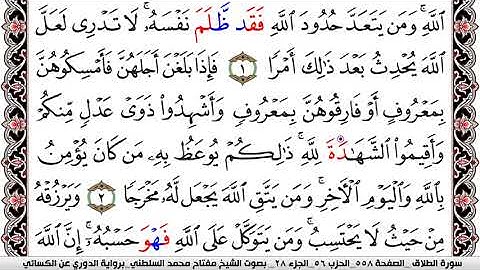 ٱللَّهِۚ وَمَن يَتَعَدَّ حُدُودَ ٱللَّهِ فَقَد ظَّلَمَ نَفْسَهُۥۚ لَا تَدْرِى لَعَلَّ
ٱللَّهَ يُحْدِثُ بَعْدَ ذَٰلِكَ أَمْرًا ١ فَإِذَا بَلَغْنَ أَجَلَهُنَّ فَأَمْسِكُوهُنَّ
بِمَعْرُوفٍ أَوْ فَارِقُوهُنَّ بِمَعْرُوفٍ وَأَشْهِدُوا۟ ذَوَىْ عَدْلٍ مِّنكُمْ
وَأَقِيمُوا۟ ٱلشَّهَٰدَةَ لِلَّهِۚ ذَٰلِكُمْ يُوعَظُ بِهِۦ مَن كَانَ يُؤْمِنُ
بِٱللَّهِ وَٱلْيَوْمِ ٱلْءَاخِرِۚ وَمَن يَتَّقِ ٱللَّهَ يَجْعَل لَّهُۥ مَخْرَجًا ٢ وَيَرْزُقْهُ
مِنْ حَيْثُ لَا يَحْتَسِبُۚ وَمَن يَتَوَكَّلْ عَلَى ٱللَّهِ فَهْوَ حَسْبُهُۥٓۚ إِنَّ ٱللَّهَ
سورة الطلاق _الصفحة ٥٥٨_الحزب ٥٦_الجزء ٢٨_ بصوت الشيخ مفتاح محمد السلطني_برواية الدوري عن الكسائي